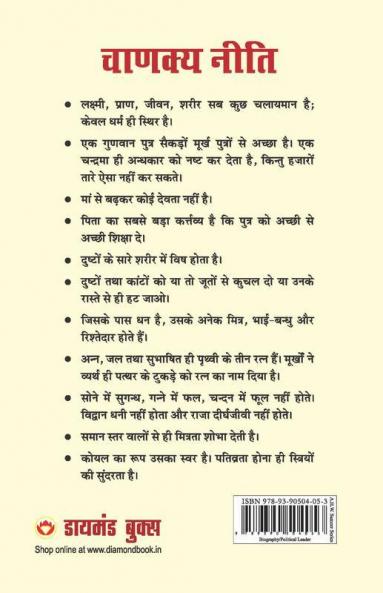 चाणक्य नीति
• लक्ष्मी, प्राण, जीवन, शरीर सब कुछ चलायमान है;
केवल धर्म ही स्थिर है।
• एक गुणवान पुत्र सैकड़ों मूर्ख पुत्रों से अच्छा है। एक
चन्द्रमा ही अन्धकार को नष्ट कर देता है, किन्तु हजारों
तारे ऐसा नहीं कर सकते।
• मां से बढ़कर कोई देवता नहीं है।
• पिता का सबसे बड़ा कर्त्तव्य है कि पुत्र को अच्छी से
अच्छी शिक्षा दे।
• दुष्टों के सारे शरीर में विष होता है।
• दुष्टों तथा कांटों को या तो जूतों से कुचल दो या उनके
रास्ते से ही हट जाओ।
• जिसके पास धन है, उसके अनेक मित्र, भाई-बन्धु और
रिश्तेदार होते हैं।
• अन्न, जल तथा सुभाषित ही पृथ्वी के तीन रत्न हैं। मूर्खों ने
व्यर्थ ही पत्थर के टुकड़े को रत्न का नाम दिया है।
• सोने में सुगन्ध, गन्ने में फल, चन्दन में फूल नहीं होते।
विद्वान धनी नहीं होता और राजा दीर्घजीवी नहीं होते।
• समान स्तर वालों से ही मित्रता शोभा देती है।
• कोयल का रूप उसका स्वर है। पतिव्रता होना ही स्त्रियों
की सुंदरता है।
डायमंड बुक्स
Shop online at www.diamondbook.in
ISBN 978-93-90504-05-3
Biography/Political Leader